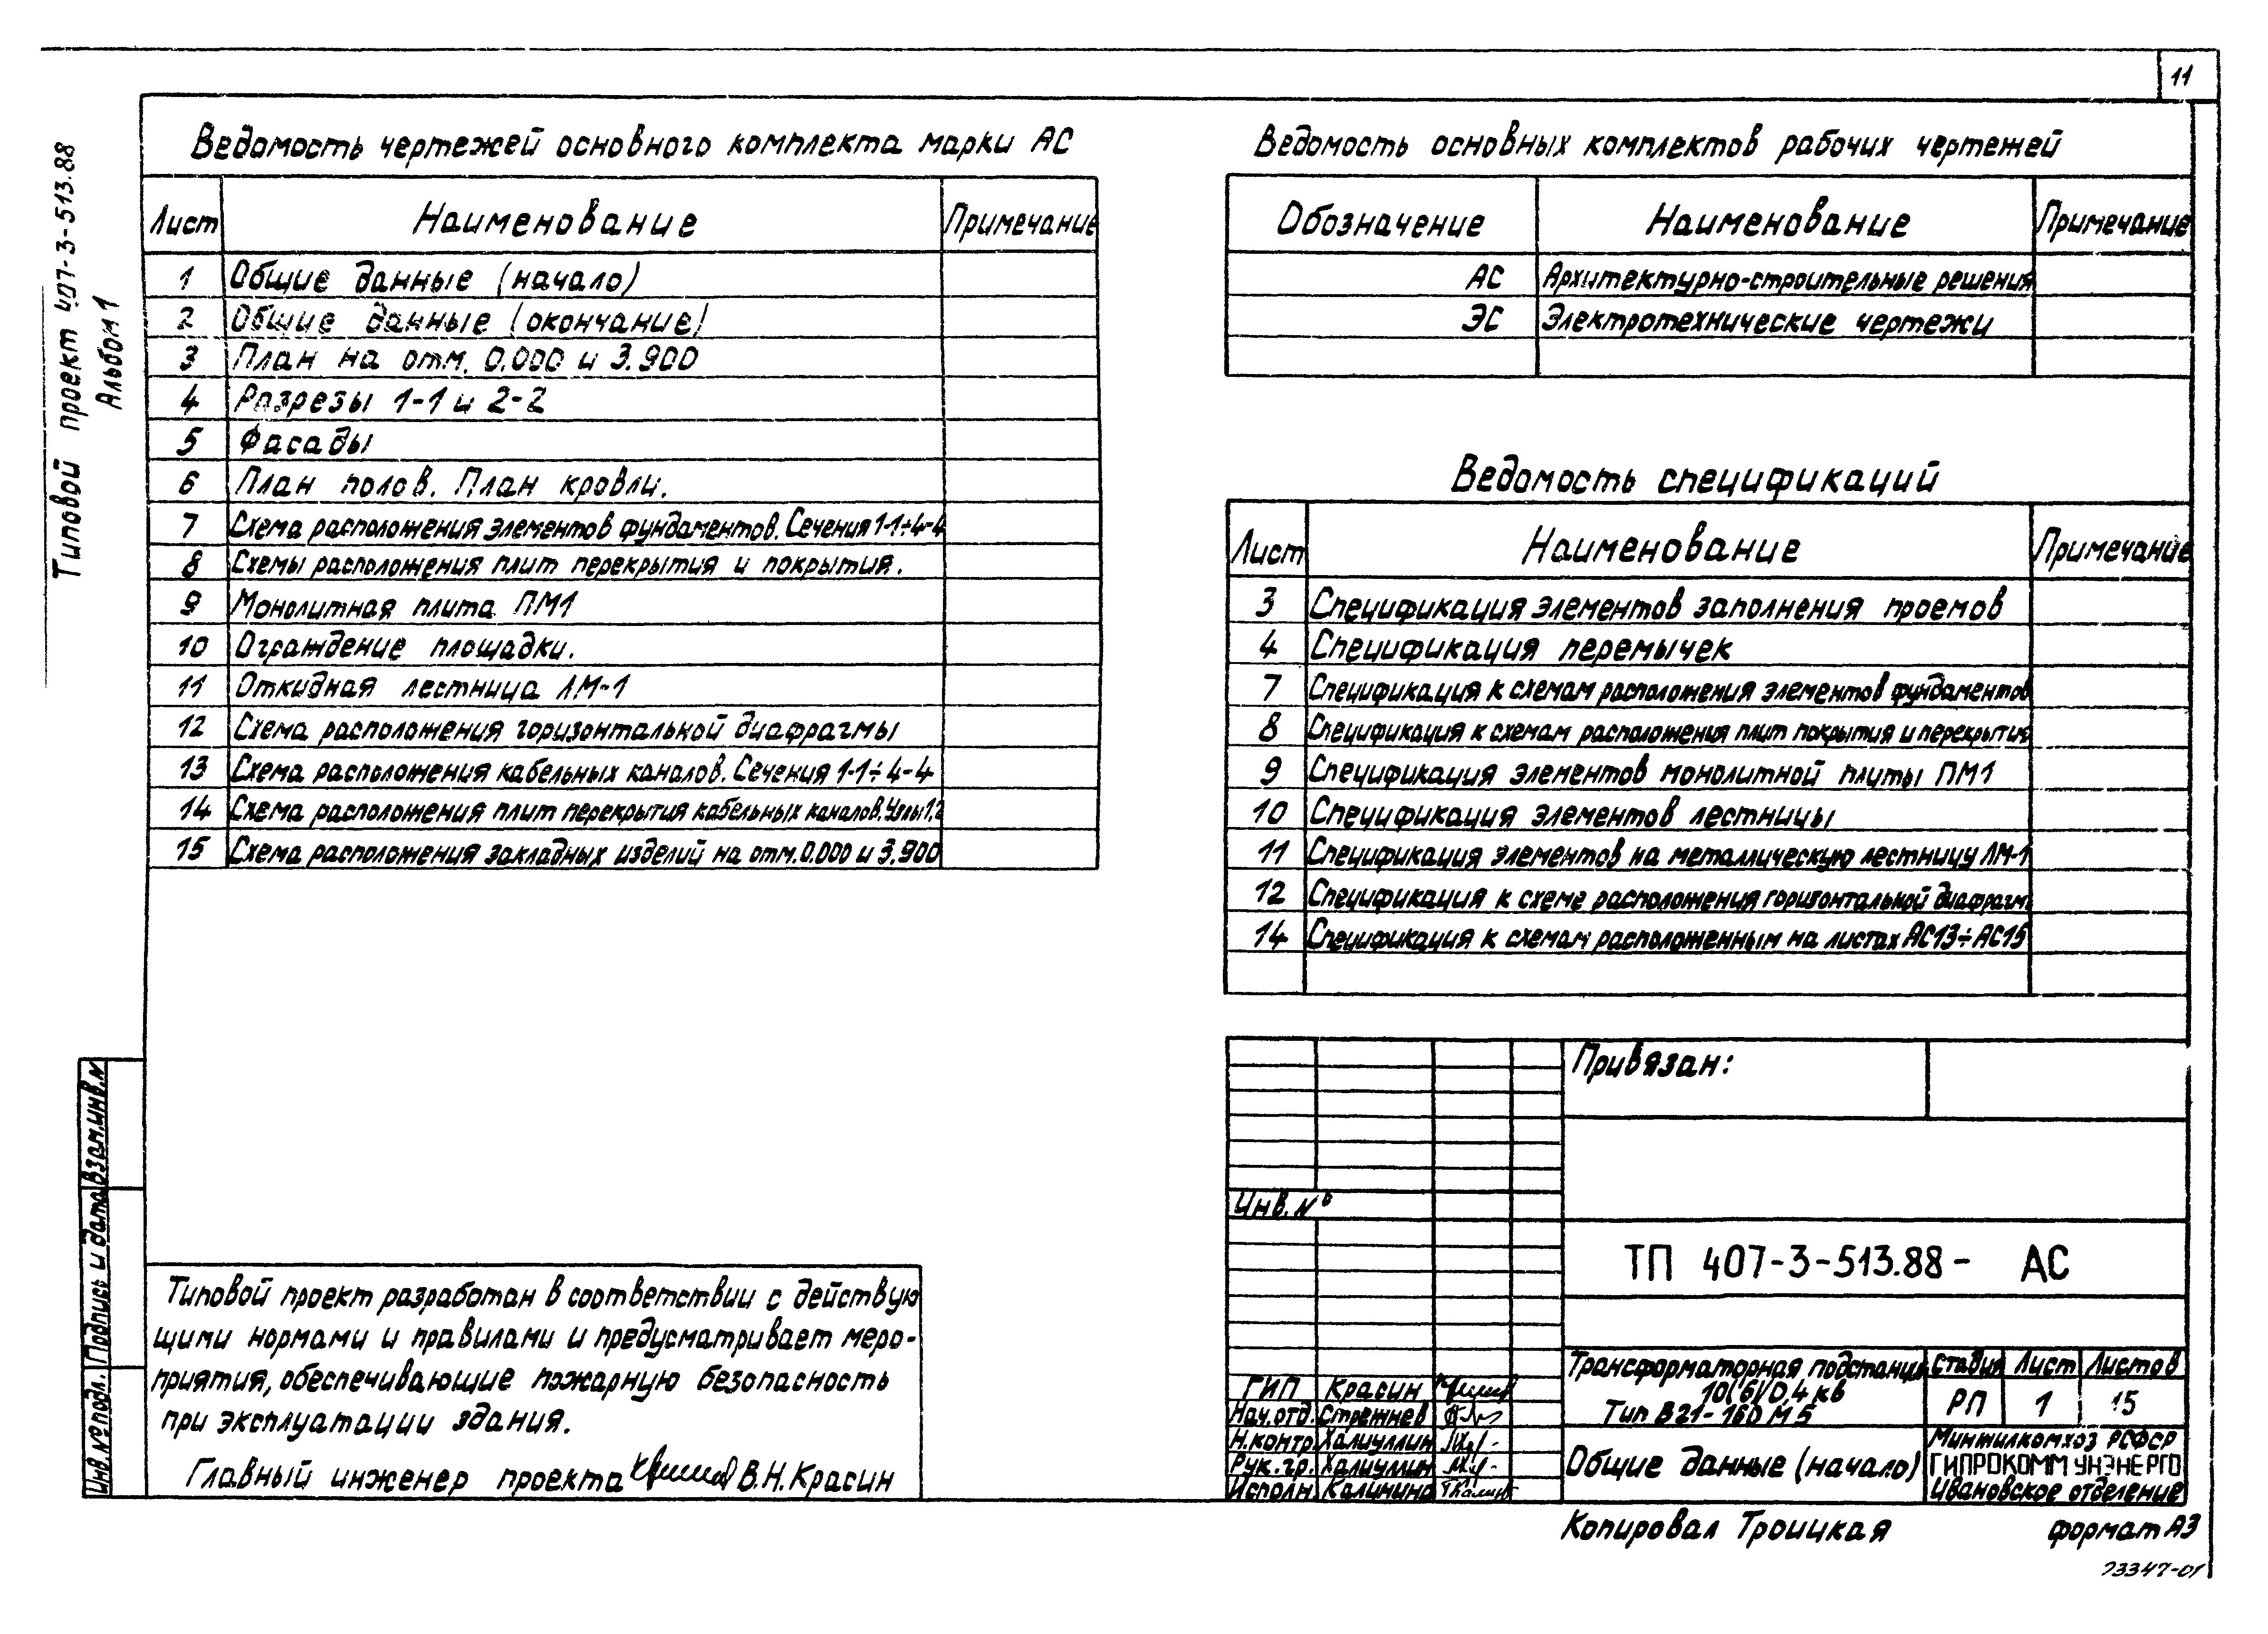 11
Типовой проект 407-3-513.88
Альбом 1
Ведомость чертежей основного комплекта марки АС
Лист Наименование Примечание
1 Общие данные (начало)
2 Общие данные (окончание)
3 План на отм. 0.000 и 3.900
4 Разрезы 1-1 и 2-2
5 Фасады
6 План полов. План кровли.
7 Схема расположения элементов фундаментов. Сечения 1-1÷4-4
8 Схемы расположения плит перекрытия и покрытия.
9 Монолитная плита ПМ1
10 Ограждение площадки.
11 Откидная лестница ЛМ-1
12 Схема расположения горизонтальной диафрагмы
13 Схема расположения кабельных каналов. Сечения 1-1÷4-4
14 Схема расположения плит перекрытия кабельных каналов. Узлы 1,2
15 Схема расположения закладных изделий на отм. 0.000 и 3.900
Ведомость основных комплектов рабочих чертежей
Обозначение Наименование Примечание
АС Архитектурно-строительные решения
ЭС Электротехнические чертежи
Ведомость спецификаций
Лист Наименование Примечание
3 Спецификация элементов заполнения проемов
4 Спецификация перемычек
7 Спецификация к схемам расположения элементов фундаментов
8 Спецификация к схемам расположения плит покрытия и перекрытия
9 Спецификация элементов монолитной плиты ПМ1
10 Спецификация элементов лестницы
11 Спецификация элементов на металлическую лестницу ЛМ-1
12 Спецификация к схеме расположения горизонтальной диафрагм
14 Спецификация к схемам расположенным на листах АС13÷АС15
Взам.инв.N
Подпись и дата
Инв.№ подл.
Типовой проект разработан в соответствии с действую
щими нормами и правилами и предусматривает меро-
приятия, обеспечивающие пожарную безопасность
при эксплуатации здания.
Главный инженер проекта В.Н.Красин
Привязан:
Инв.№
ТП 407-3-513.88- АС
ГИП Красин
Нач.отд. Стрежнев
Н.контр. Халиуллин
Рук.гр. Халиуллин
Исполн. Калинина
Трансформаторная подстанция
10(6)/0,4 кв
Тип В21-160 М5
Стадия Лист Листов
РП 1 15
Общие данные (начало)
Минжилкомхоз РСФСР
ГИПРОКОММУНЭНЕРГО
Ивановское отделение
Копировал Троицкая формат А3
23347-01